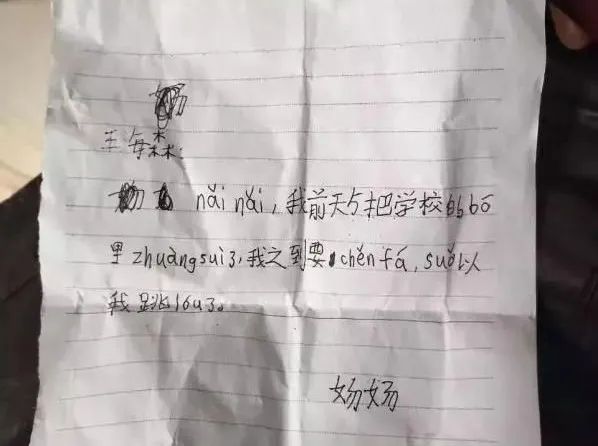 王每森:
nǎi nǎi,我前天与把学校的bō
里zhuàngsuì了,我之到要chěn fá,suǒ以
我跳lóu了。